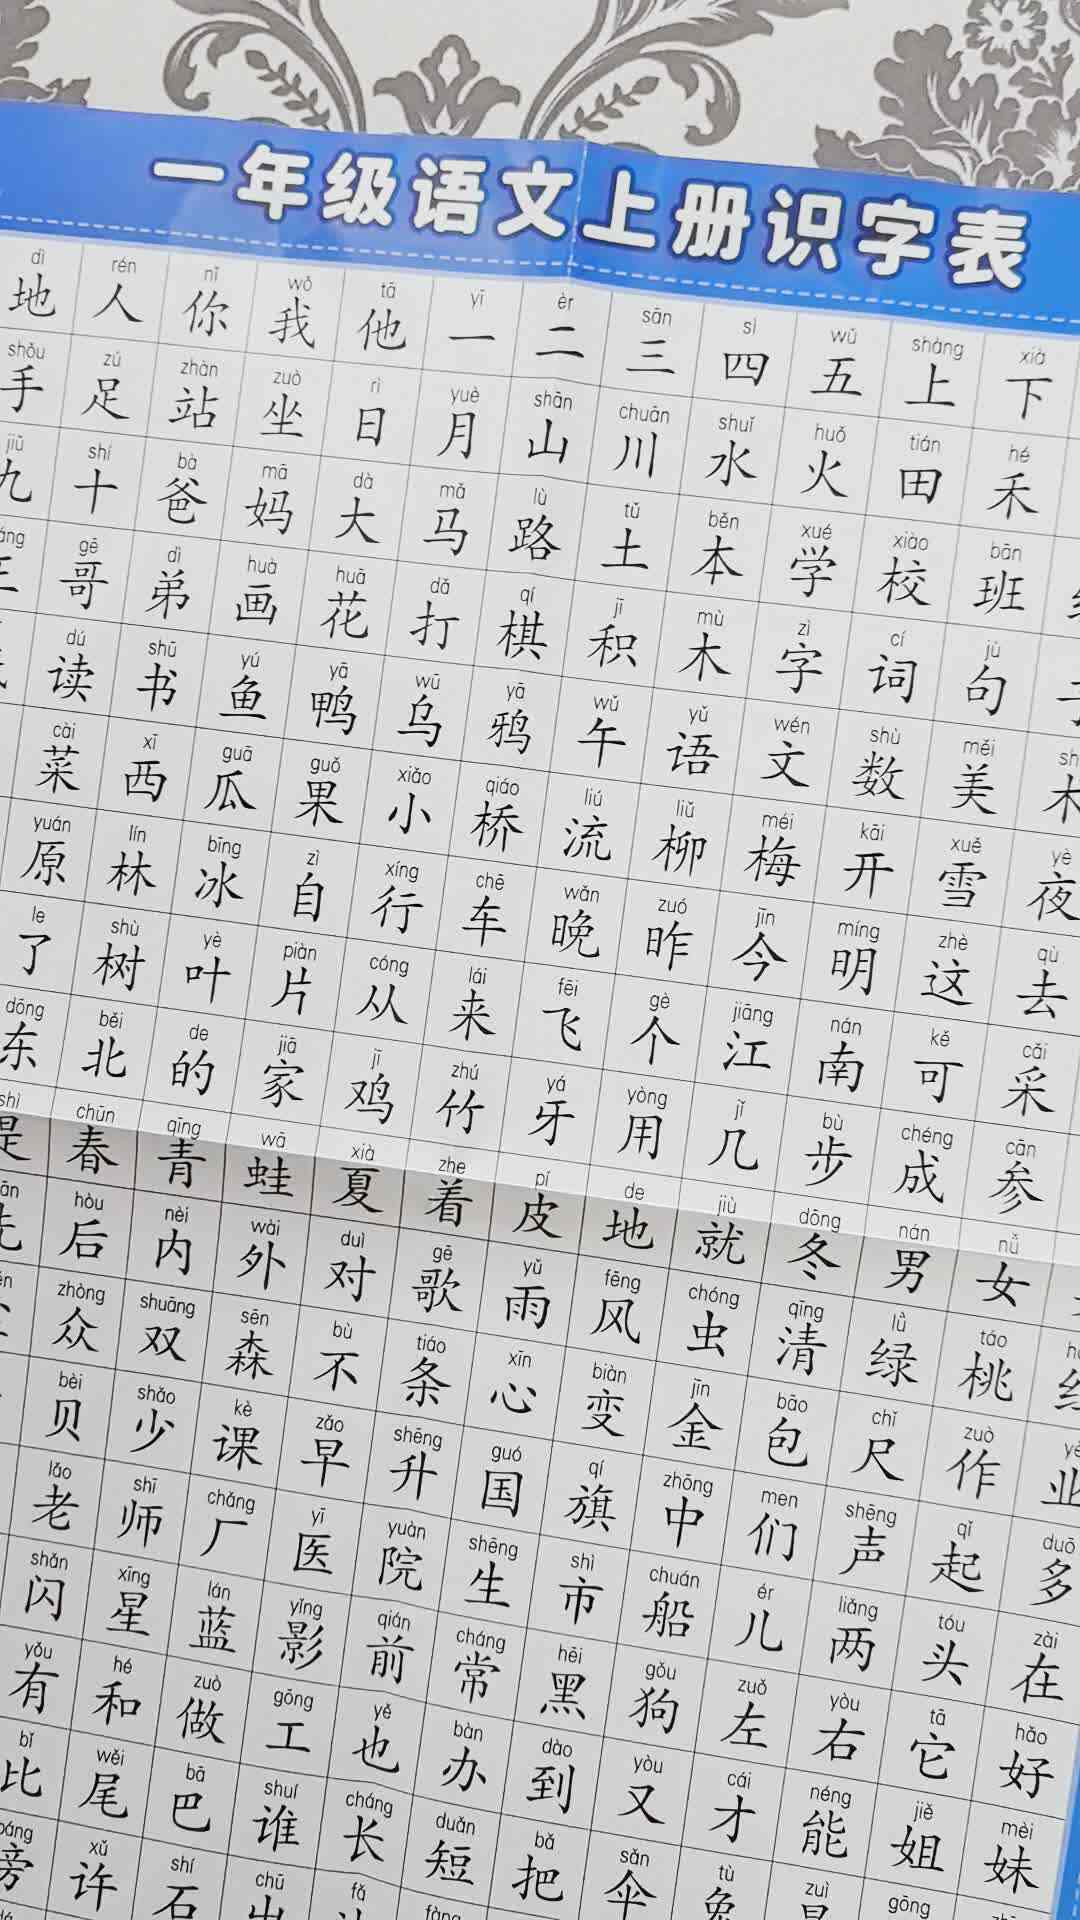 一年级语文上册识字表
dì rén nǐ wǒ tā yī èr sān sì wǔ shàng xià
地 人 你 我 他 一 二 三 四 五 上 下
shǒu zú zhàn zuò rì yuè shān chuān shuǐ huǒ tián hé
手 足 站 坐 日 月 山 川 水 火 田 禾
jiǔ shí bà mā dà mǎ lù tǔ běn xué xiào bān
九 十 爸 妈 大 马 路 土 本 学 校 班
gē dì huà huā dǎ qí jī mù zì cí jù
哥 弟 画 花 打 棋 积 木 字 词 句
dú shū yú yā wū yā wǔ yǔ wén shù měi
读 书 鱼 鸭 乌 鸦 午 语 文 数 美
cài xī guā guǒ xiǎo qiáo liú liǔ méi kāi xuě yè
菜 西 瓜 果 小 桥 流 柳 梅 开 雪 夜
yuán lín bīng zì xíng chē wǎn zuó jīn míng zhè qù
原 林 冰 自 行 车 晚 昨 今 明 这 去
le shù yè piàn cóng lái fēi gè jiāng nán kě cǎi
了 树 叶 片 从 来 飞 个 江 南 可 采
dōng běi de jiā jī zhú yá yòng jǐ bù chéng cān
东 北 的 家 鸡 竹 牙 用 几 步 成 参
shì chūn qīng wā xià zhe pí de jiù dōng nán nǚ
是 春 青 蛙 夏 着 皮 地 就 冬 男 女
hòu nèi wài duì gē yǔ fēng chóng qīng lǜ táo
后 内 外 对 歌 雨 风 虫 清 绿 桃
zhòng shuāng sēn bù tiáo xīn biàn jīn bāo chǐ zuò
众 双 森 不 条 心 变 金 包 尺 作
bèi shǎo kè zǎo shēng guó qí zhōng men shēng qǐ duō
贝 少 课 早 升 国 旗 中 们 声 起 多
lǎo shī chǎng yī yuàn shēng shì chuán ér liǎng tóu zài
老 师 厂 医 院 生 市 船 儿 两 头 在
shǎn xīng lán yǐng qián cháng hēi gǒu zuǒ yòu tā hǎo
闪 星 蓝 影 前 常 黑 狗 左 右 它 好
yǒu hé zuò gōng yě bàn dào yòu cái néng jiě mèi
有 和 做 工 也 办 到 又 才 能 姐 妹
bǐ wěi bā shuí cháng duǎn bǎ sǎn tù zuì gōng
比 尾 巴 谁 长 短 把 伞 兔
xǔ shí chū fǎ fàng
许 石 出